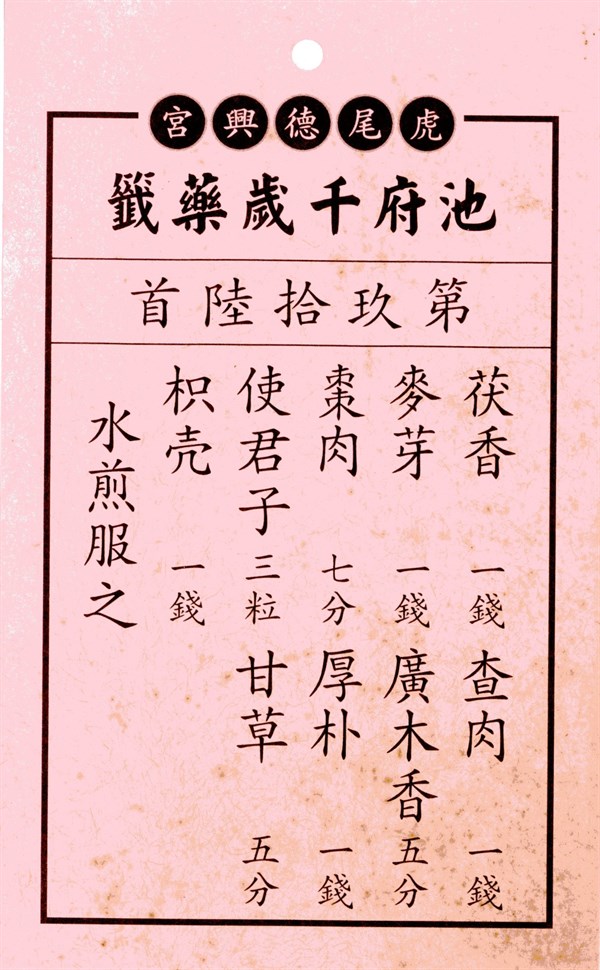 虎尾德興宮
池府千歲藥籤
第玖拾陸首
茯香 一錢 查肉 一錢
麥芽 一錢 廣木香 五分
棗肉 七分 厚朴 一錢
使君子 三粒 甘草 五分
枳壳 一錢
水煎服之